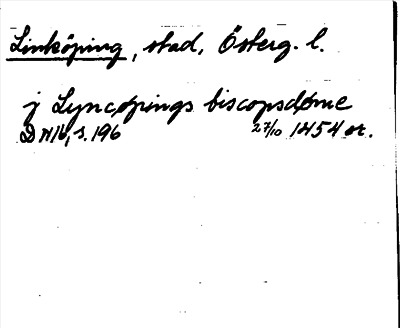 Linköping, stad, Österg. l.
j Lyncøpings biscopsdøme
D N 16, s. 196 27/10 1454 or.